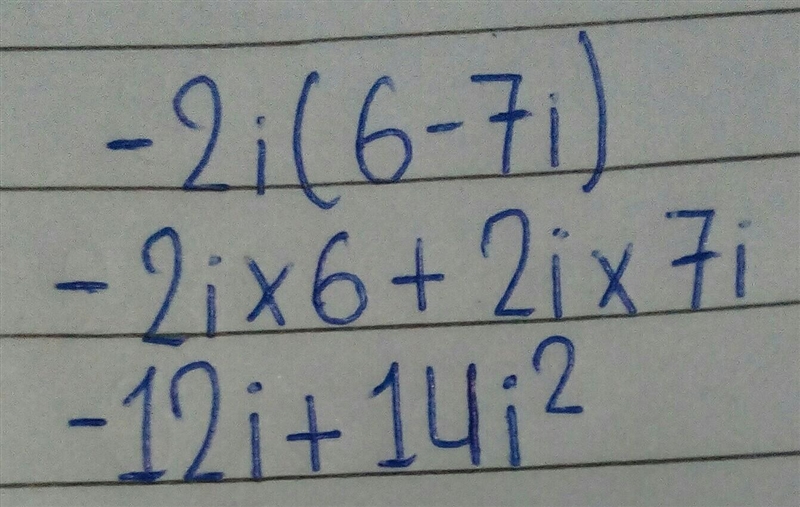 -2i(6-7i)
-2i×6+2i×7i
-12i+14i²